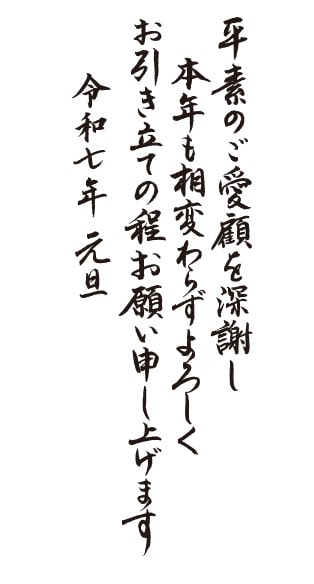 平素のご愛顧を深謝し
本年も相変わらずよろしく
お引き立ての程お願い申し上げます
令和七年 元旦